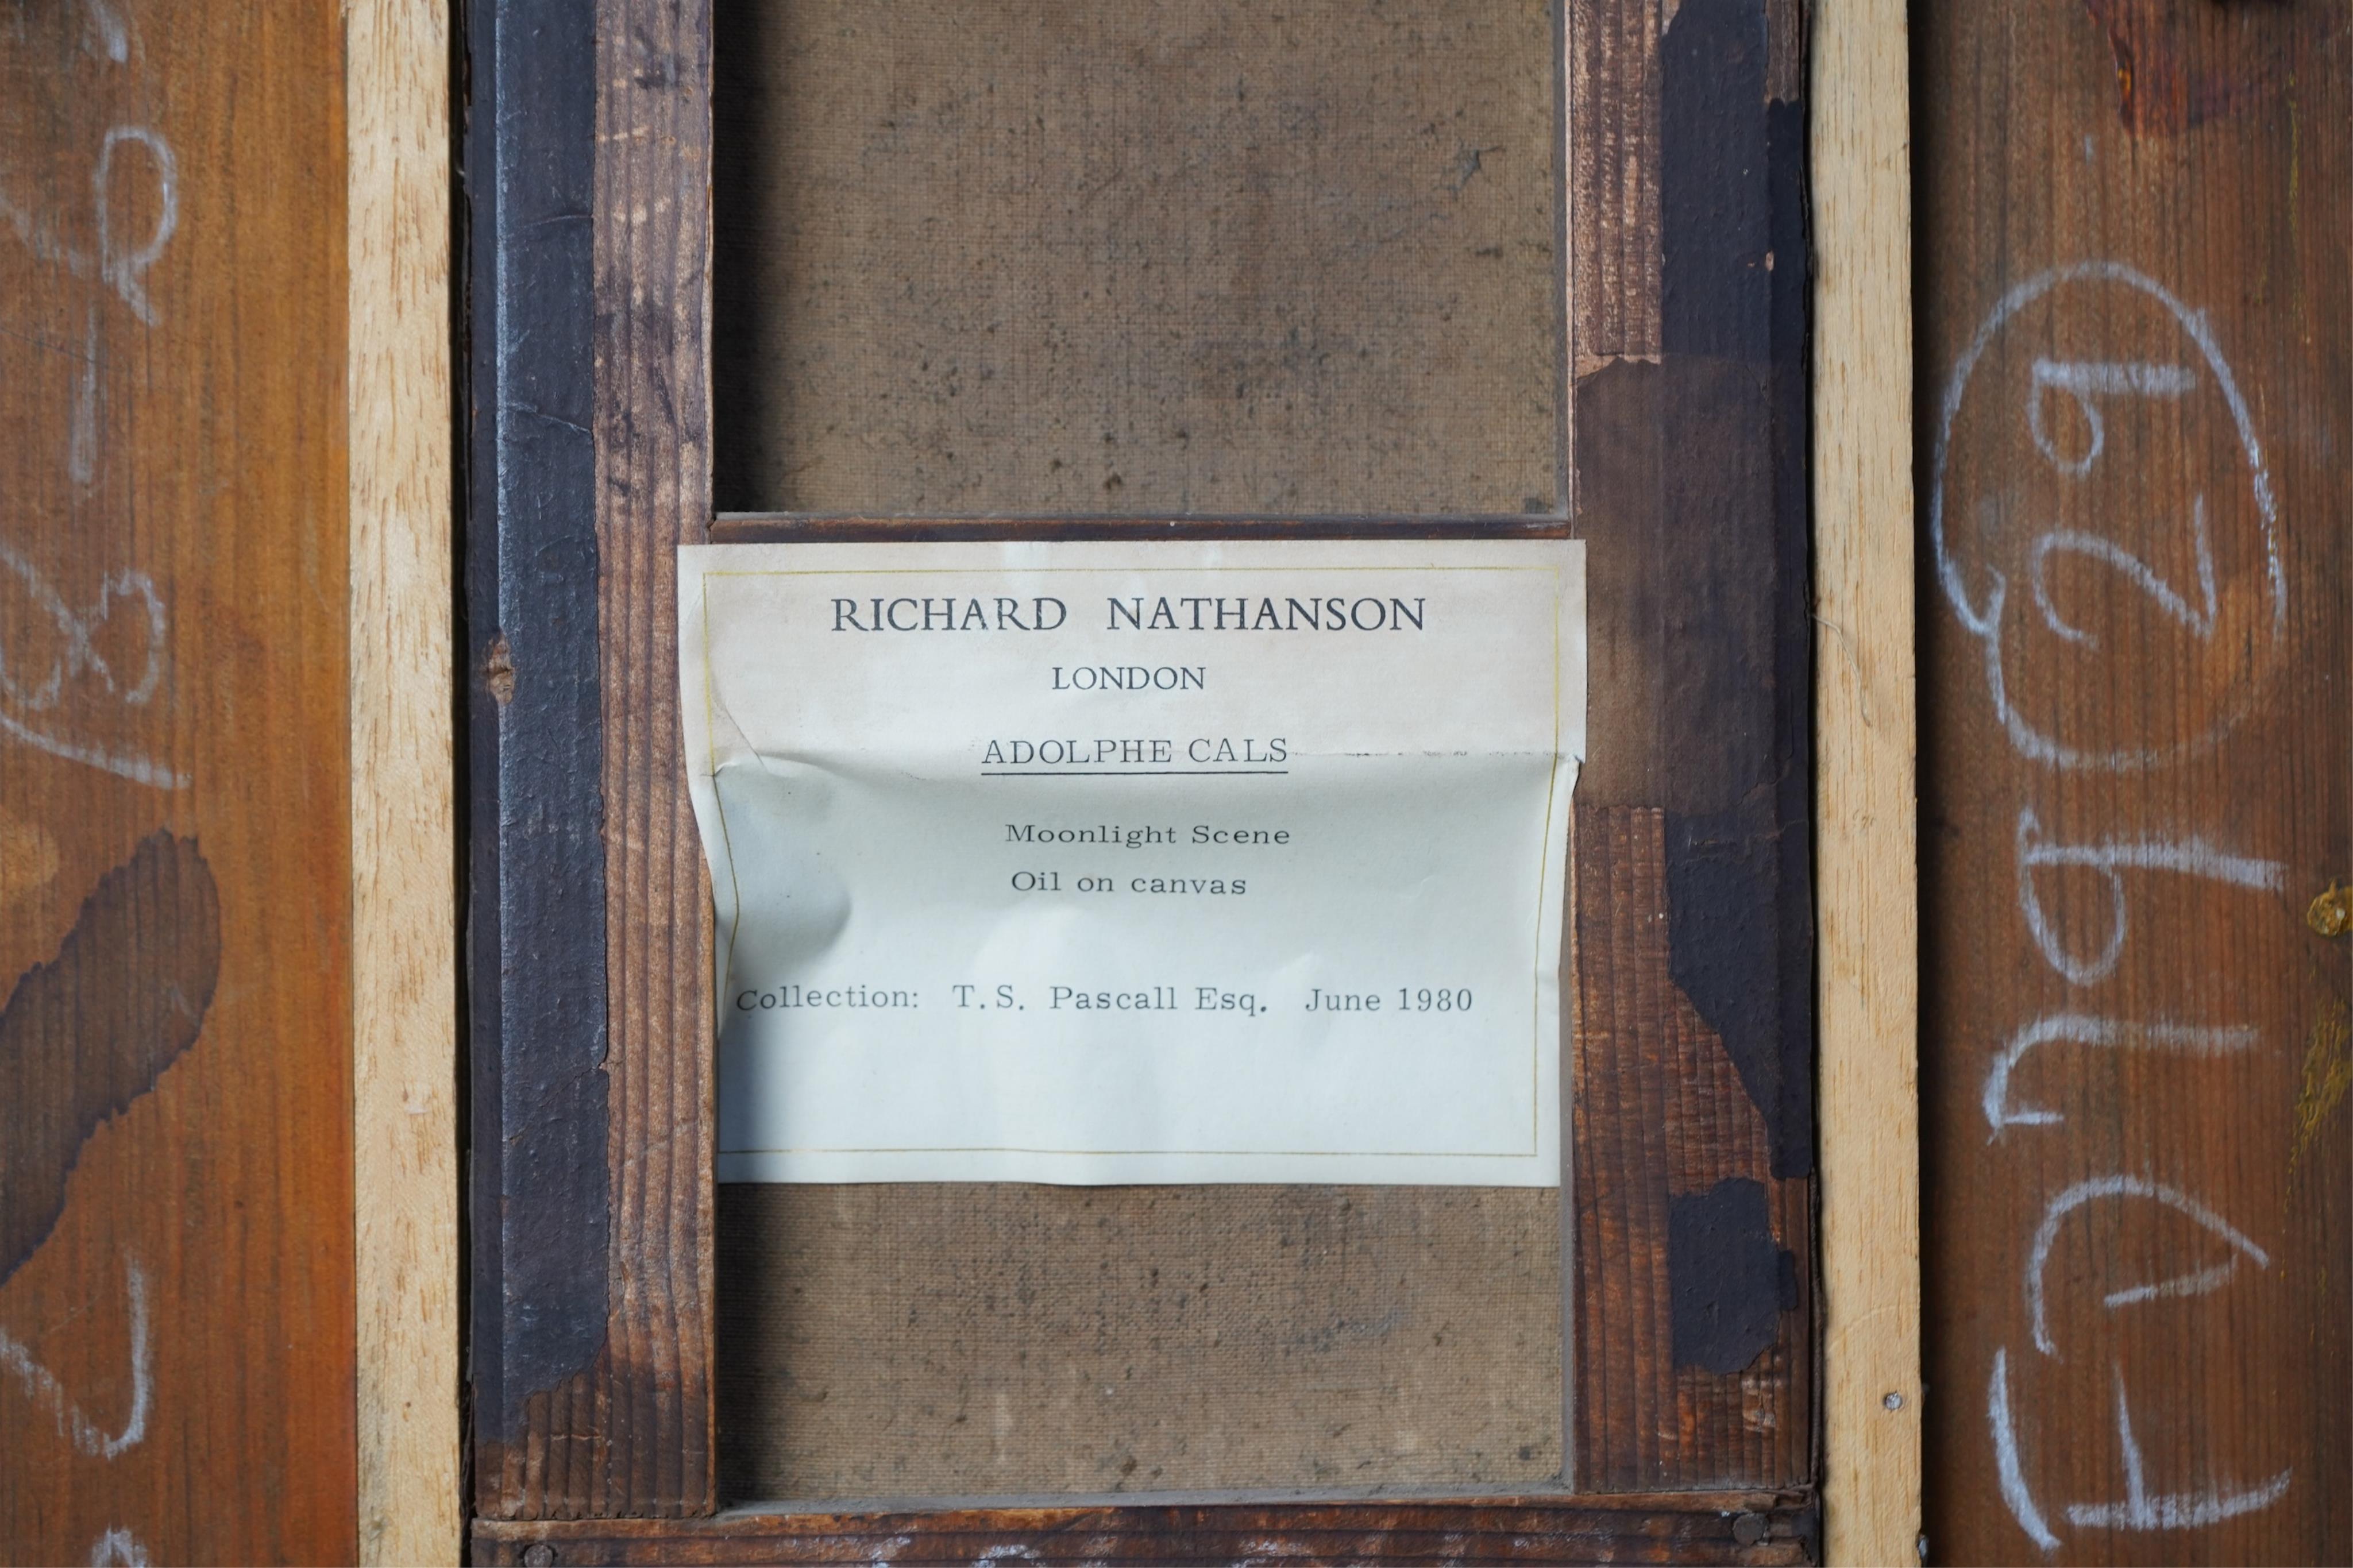 RICHARD NATHANSON
LONDON
ADOLPHE CALS
Moonlight Scene
Oil on canvas
Collection: T.S. Pascall Esq. June 1980
29